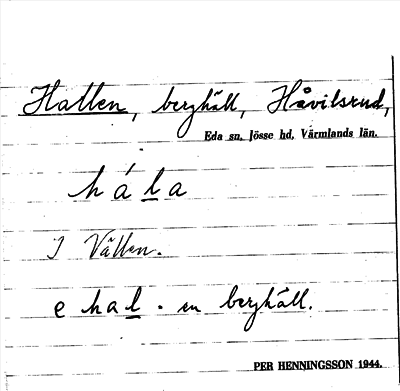 Hallen, berghäll, Håvilsrud,
Eda sn, Jösse hd, Värmlands län.
hála
I Vällen.
e hal. en berghäll.
PER HENNINGSSON 1944.